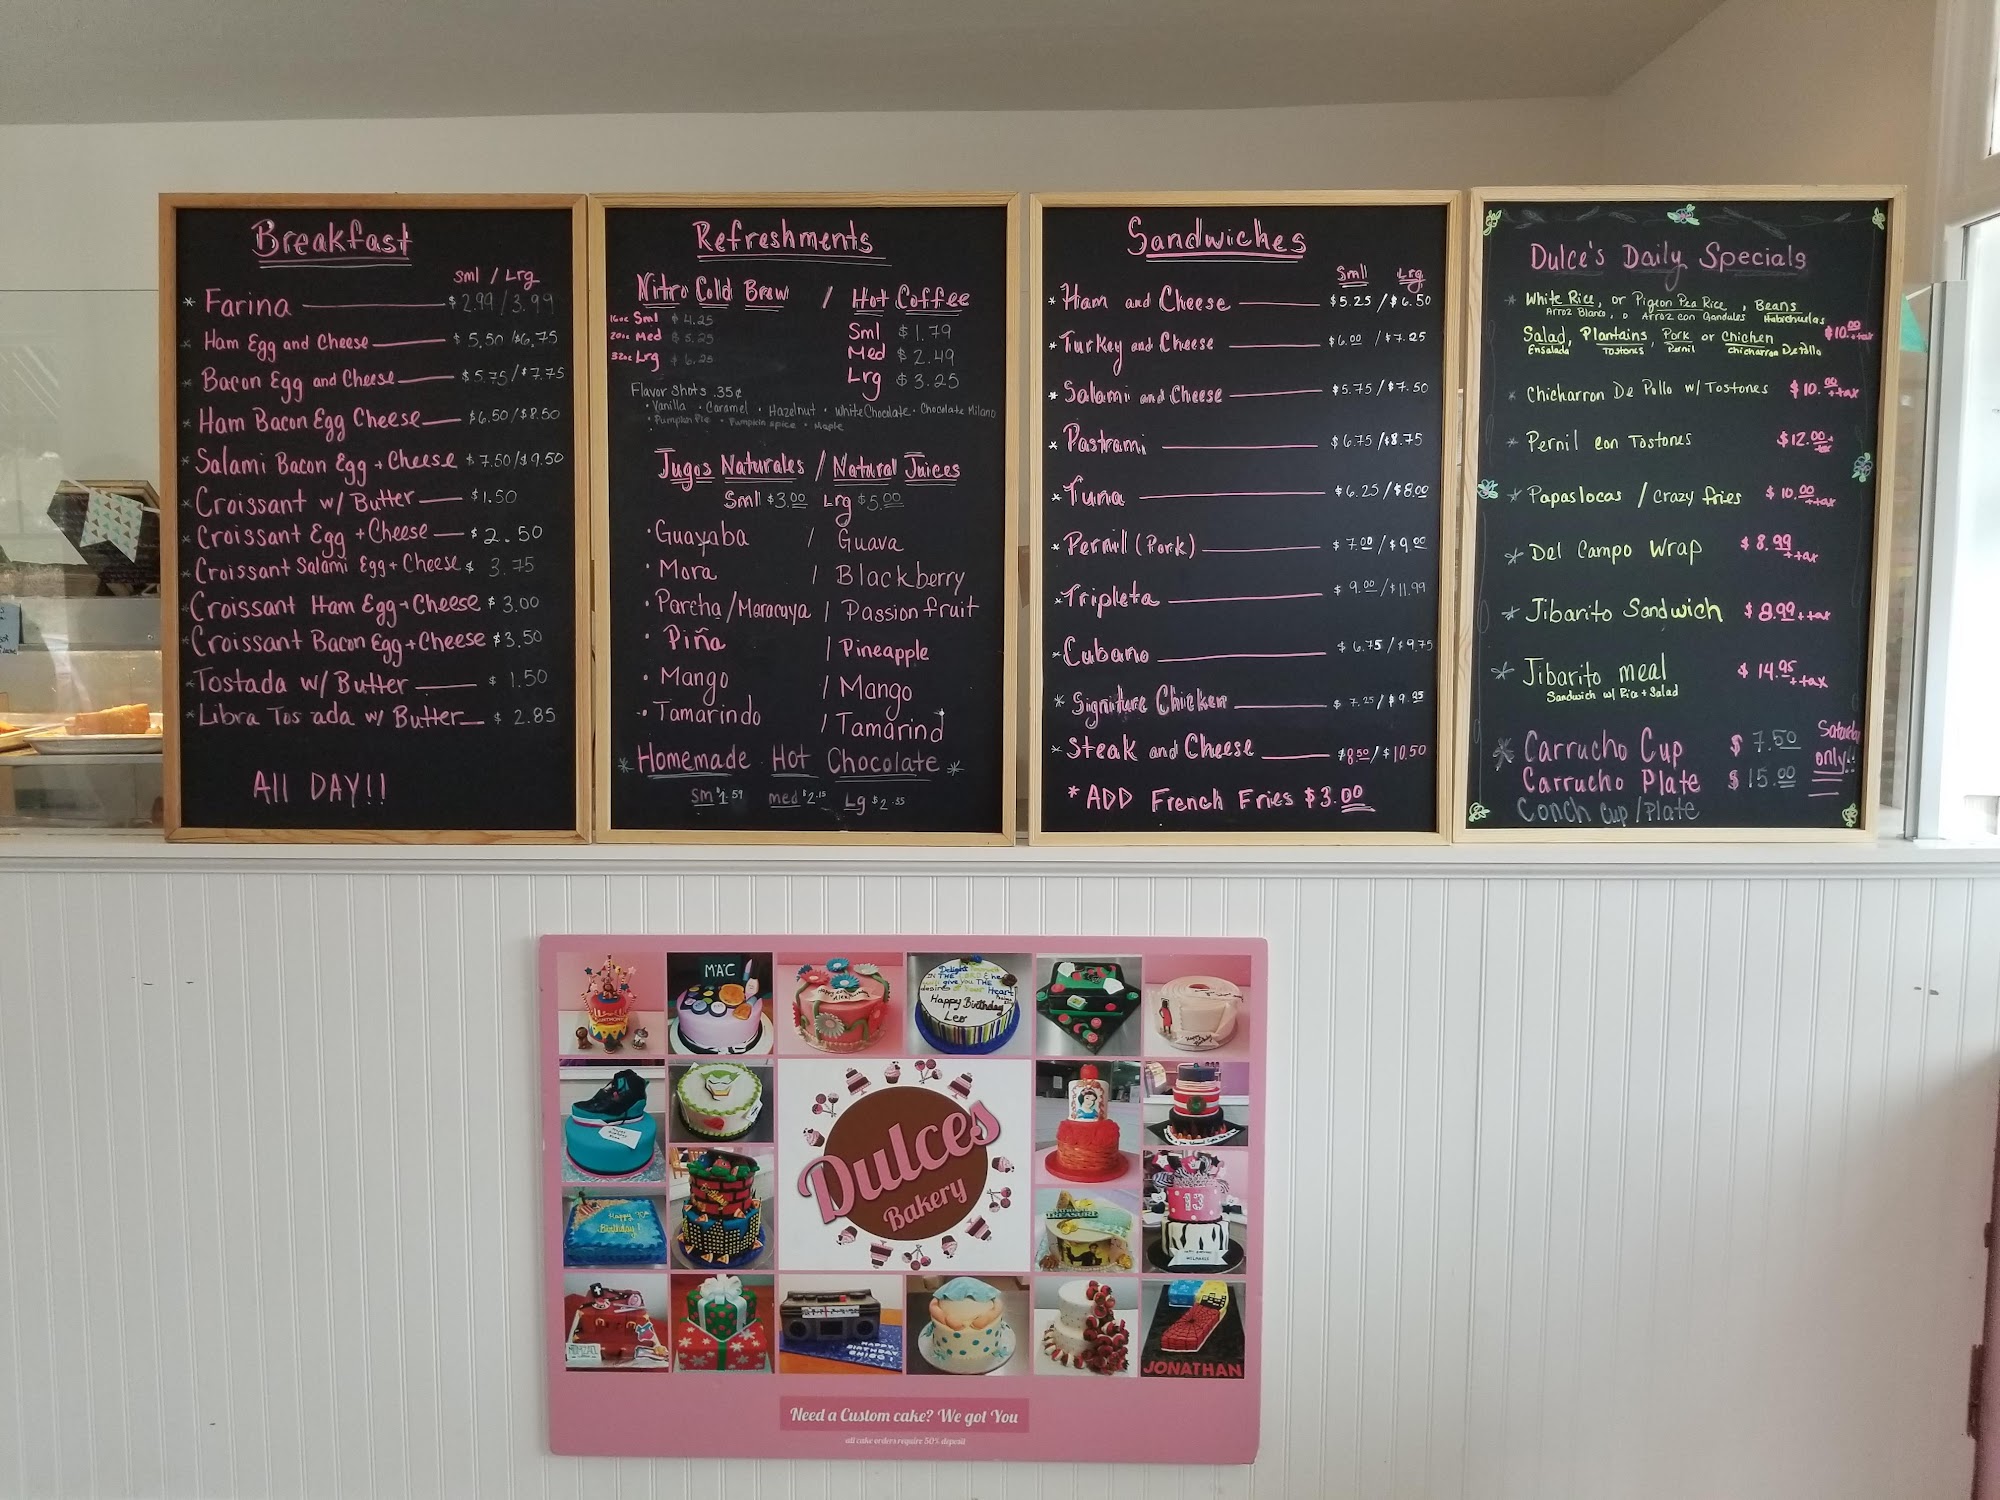 Breakfast
Sml / Lrg
* Farina $2.99 / 3.99
* Ham Egg and Cheese $5.50 / $6.75
* Bacon Egg and Cheese $5.75 / $7.75
* Ham Bacon Egg Cheese $6.50 / $8.50
* Salami Bacon Egg + Cheese $7.50 / $9.50
* Croissant w/ Butter $1.50
* Croissant Egg + Cheese $2.50
* Croissant Salami Egg + Cheese $3.75
* Croissant Ham Egg + Cheese $3.00
* Croissant Bacon Egg + Cheese $3.50
* Tostada w/ Butter $1.50
* Libra Tos ada w/ Butter $2.85
All DAY!!
Refreshments
Nitro Cold Brew / Hot Coffee
16oz Sml $4.25
20oz Med $5.25
32oz Lrg $6.25
Sml $1.79
Med $2.49
Lrg $3.25
Flavor Shots .35¢
• Vanilla • Caramel • Hazelnut • White Chocolate • Chocolate Milano
• Pumpkin Pie • Pumpkin spice • Maple
Jugos Naturales / Natural Juices
Smll $3.00 Lrg $5.00
• Guayaba / Guava
• Mora / Blackberry
• Parcha/Maracuya / Passion fruit
• Piña / Pineapple
• Mango / Mango
• Tamarindo / Tamarind
* Homemade Hot Chocolate *
Sm $1.59 med $2.15 Lg $2.55
Sandwiches
Smll Lrg
* Ham and Cheese $5.25 / $6.50
* Turkey and Cheese $6.00 / $7.25
* Salami and Cheese $5.75 / $7.50
* Pastrami $6.75 / $8.75
* Tuna $6.25 / $8.00
* Pernil (Pork) $7.00 / $9.00
* Tripleta $9.00 / $11.99
* Cubano $6.75 / $9.75
* Signiture Chicken $7.25 / $9.25
* Steak and Cheese $8.50 / $10.50
* ADD French Fries $3.00
Dulce's Daily Specials
* White Rice, or Pigeon Pea Rice, Beans
Arroz Blanco, o Arroz con Gandules Habichuelas
Salad, Plantains, Pork or Chichen $10.00 + tax
Ensalada Tostones Pernil Chicharron De Pollo
* Chicharron De Pollo w/ Tostones $10.00 + tax
* Pernil con Tostones $12.00 + tax
* Papas locas / Crazy fries $10.00 + tax
* Del Campo Wrap $8.99 + tax
* Jibarito Sandwich $8.99 + tax
* Jibarito meal $14.95 + tax
Sandwich w/ Rice + Salad
* Carrucho Cup $7.50
Carrucho Plate $15.00
Saturday only!!
Conch Cup/Plate
MAC
Happy Birthday
Leo
Dulces
Bakery
Happy
Birthday!
13
HAPPY
BIRTHDAY
JONATHAN
Need a Custom cake? We got You
all cake orders require 50% deposit